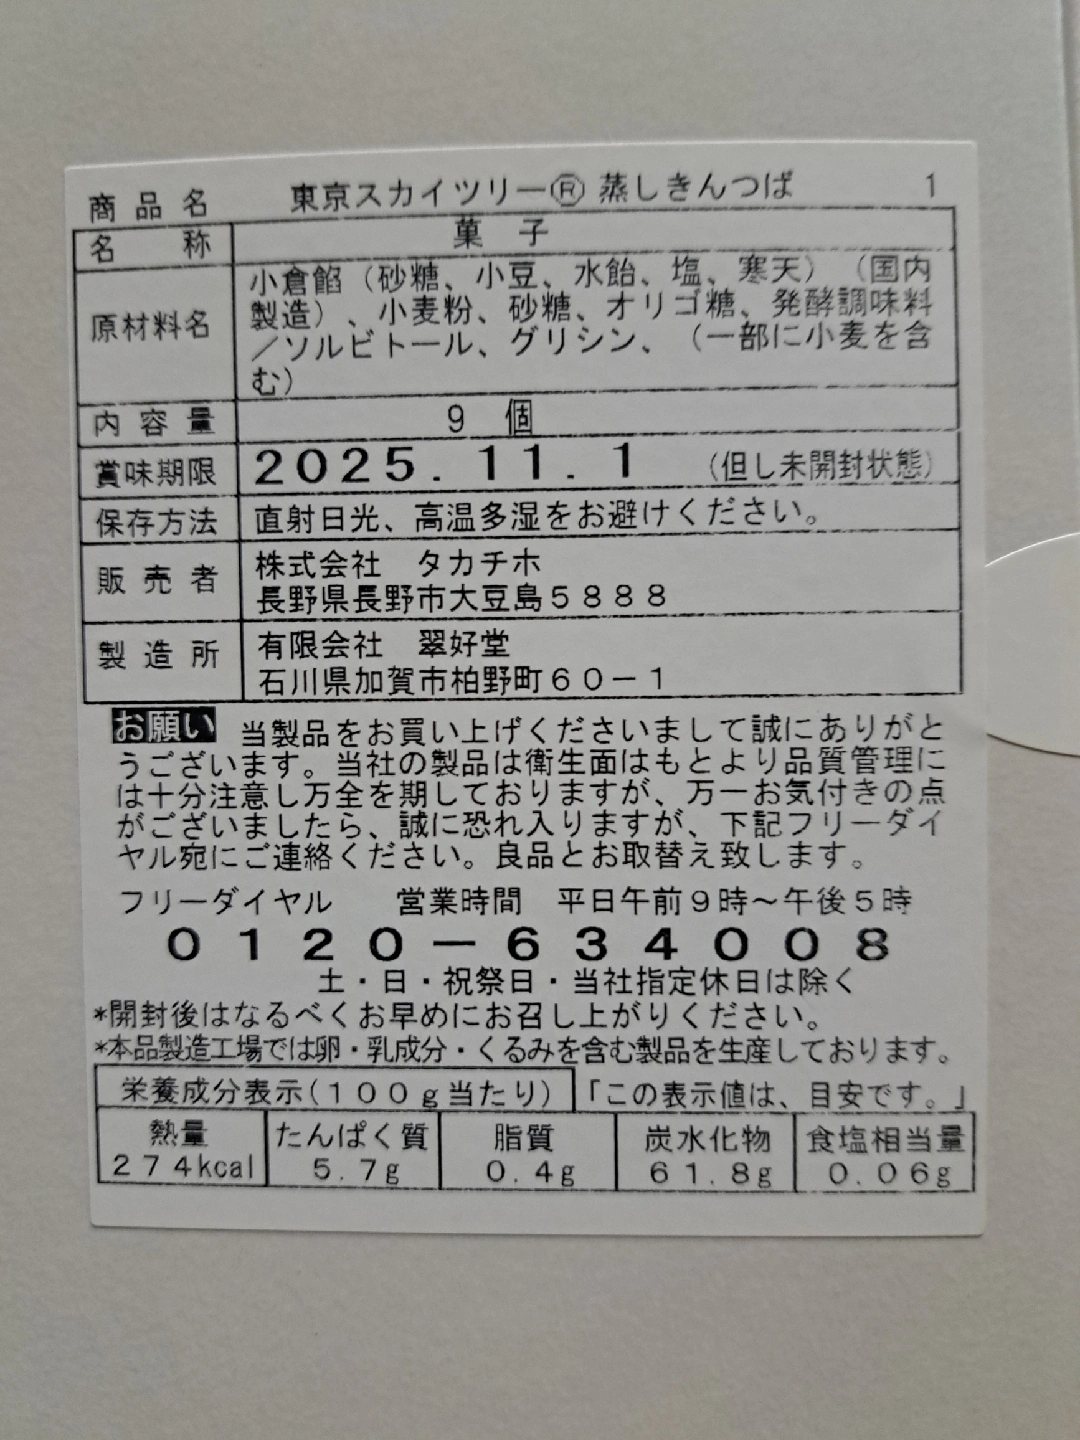 商品名 東京スカイツリー® 蒸しきんつば 1
名称 菓子
原材料名 小倉餡（砂糖、小豆、水飴、塩、寒天）（国内
製造）、小麦粉、砂糖、オリゴ糖、発酵調味料
／ソルビトール、グリシン、（一部に小麦を含
む）
内容量 9 個
賞味期限 2025.11.1 （但し未開封状態）
保存方法 直射日光、高温多湿をお避けください。
販売者 株式会社 タカチホ
長野県長野市大豆島５８８８
製造所 有限会社 翠好堂
石川県加賀市柏野町６０－１
お願い 当製品をお買い上げくださいまして誠にありがと
うございます。当社の製品は衛生面はもとより品質管理に
は十分注意し万全を期しておりますが、万一お気付きの点
がございましたら、誠に恐れ入りますが、下記フリーダイ
ヤル宛にご連絡ください。良品とお取替え致します。
フリーダイヤル 営業時間 平日午前９時～午後５時
０１２０－６３４００８
土・日・祝祭日・当社指定休日は除く
*開封後はなるべくお早めにお召し上がりください。
*本品製造工場では卵・乳成分・くるみを含む製品を生産しております。
栄養成分表示(１００ｇ当たり) 「この表示値は、目安です。」
熱量 たんぱく質 脂質 炭水化物 食塩相当量
２７４kcal ５.７g ０.４g ６１.８g ０.０６g